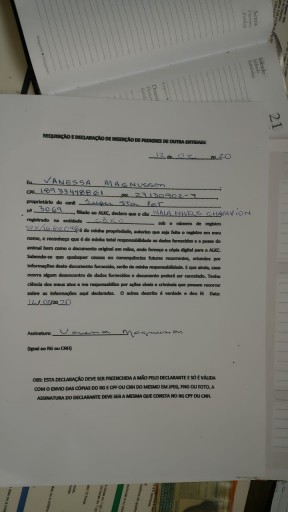 Sexta
Sábado
21
REQUISIÇÃO E DECLARAÇÃO DE INSERÇÃO DE PEDIGREE DE OUTRA ENTIDADE
20
Eu VANESSA MAGNUSSON
CPF 18933448861 RG 23130902-7
proprietário do canil Super Star Pet
nº 3069 filiado ao ALKC, declaro que o cão CHAMPION
registrado na entidade sob o número de registro
é de minha propriedade, autorizo que seja feito o registro em meu
nome, e reconheço que é de minha total responsabilidade os dados fornecidos e a posse do
animal bem como o documento original em mãos, onde forneço a cópia digital para o ALKC.
Sabendo-se que quaisquer causas ou consequências futuras recorrentes, oriundas por
informações deste documento fornecido, serão de minha responsabilidade. E que ainda, caso
ocorra algum desencontro de dados fornecidos o documento poderá ser cancelado. Tenho
ciência dos meus atos e me responsabilizo por ações cíveis e criminais que possam recorrer
sobre as informações aqui declaradas. O acima descrito é verdade e dou fé. Data:
Assinatura: Vanessa Magnusson
(Igual ao RG ou CNH)
OBS: ESTA DECLARAÇÃO DEVE SER PREENCHIDA A MÃO PELO DECLARANTE E SÓ É VÁLIDA
COM O ENVIO DAS CÓPIAS DO RG E CPF OU CNH DO MESMO EM JPEG, PNG OU FOTO. A
ASSINATURA DO DECLARANTE DEVE SER A MESMA QUE CONSTA NO RG CPF OU CNH.